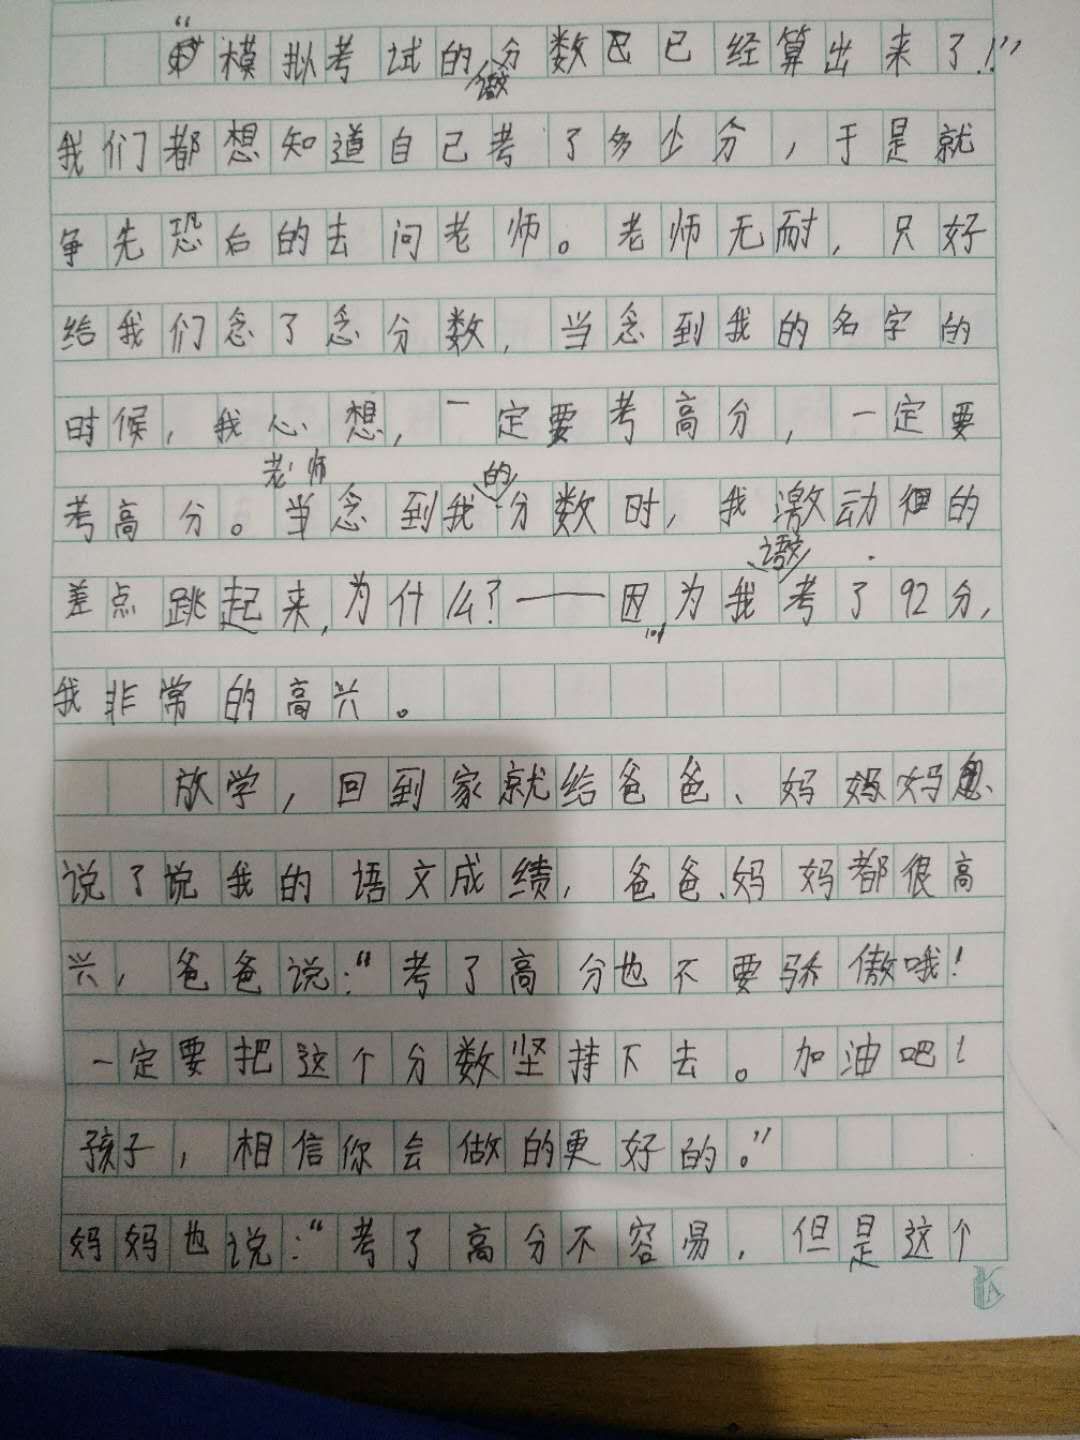 “模拟考试的分数已经算出来了！”
我们都想知道自己考了多少分，于是就
争先恐后的去问老师。老师无耐，只好
给我们念了念分数，当念到我的名字的
时候，我心想，一定要考高分，一定要
考高分。当老师念到我的分数时，我激动的
差点跳起来，为什么？——因为我语文考了92分，
我非常的高兴。
放学，回到家就给爸爸、妈妈
说了说我的语文成绩，爸爸、妈妈都很高
兴，爸爸说：“考了高分也不要骄傲哦！
一定要把这个分数坚持下去。加油吧！
孩子，相信你会做的更好的。”
妈妈也说：“考了高分不容易，但是这个